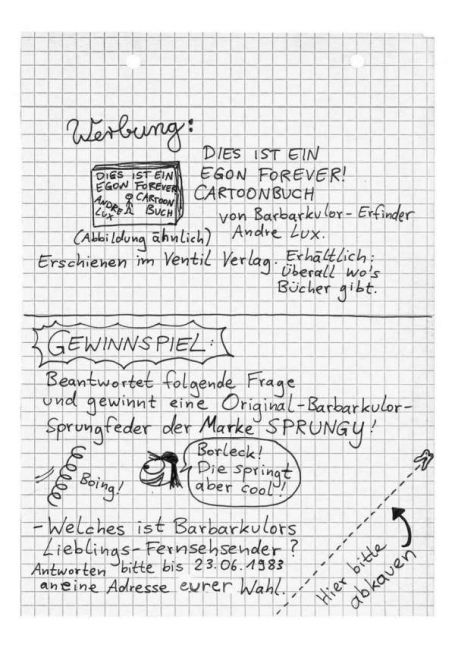 Werbung:
DIES IST EIN
EGON FOREVER!
CARTOONBUCH
von Barbarkulor-Erfinder
Andre Lux.
DIES IST EIN
EGON FOREVER
CARTOON
BUCH
ANDRE
LUX
(Abbildung ähnlich)
Erschienen im Ventil Verlag. Erhältlich:
Überall wo's
Bücher gibt.
GEWINNSPIEL:
Beantwortet folgende Frage
und gewinnt eine Original-Barbarkulor-
Sprungfeder der Marke SPRUNGY!
Boing!
Borleck!
Die springt
aber cool!
- Welches ist Barbarkulors
Lieblings-Fernsehsender?
Antworten bitte bis 23.06.1983
an eine Adresse eurer Wahl.
Hier bitte
abkauen